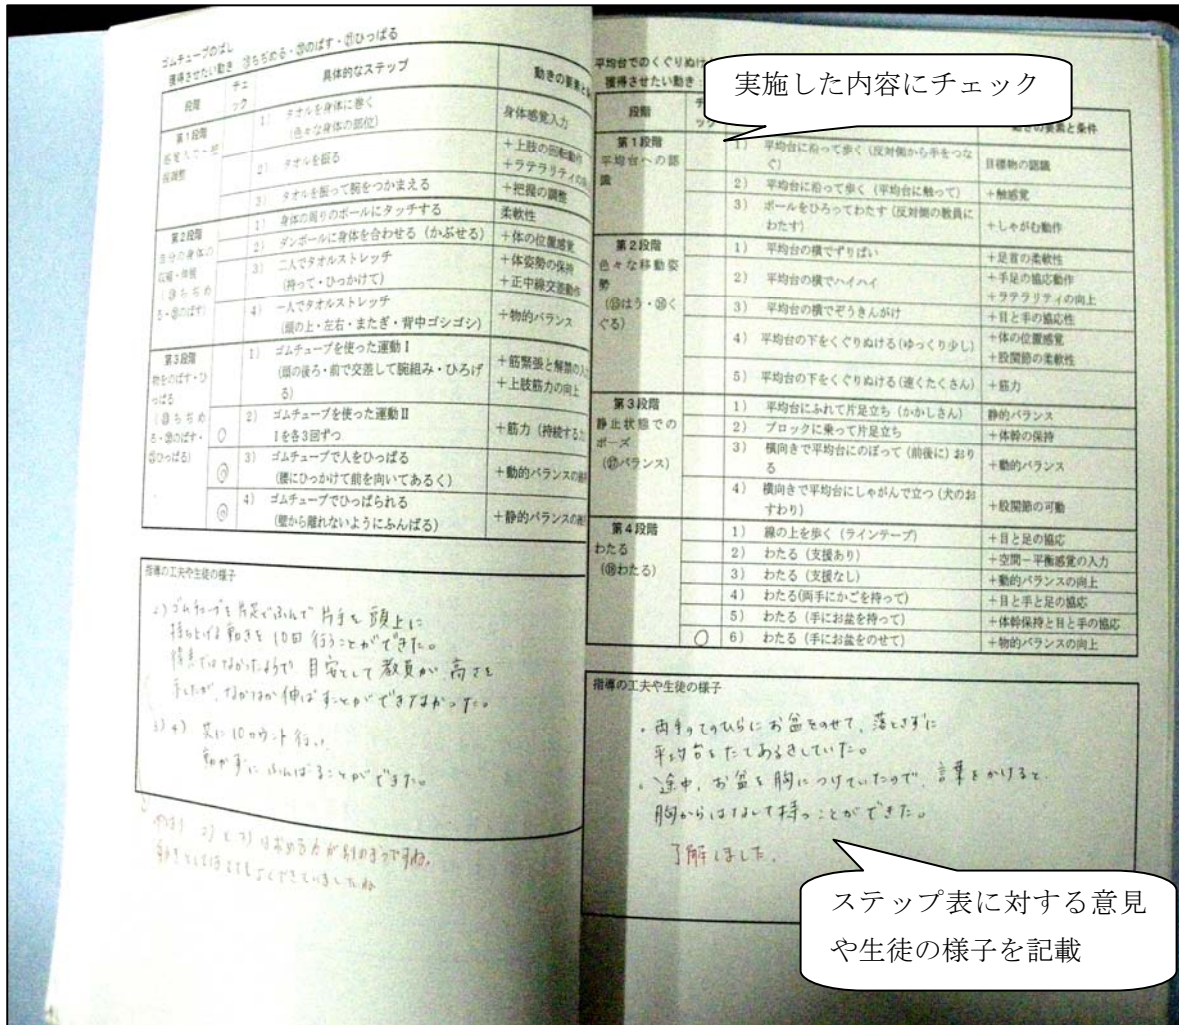 ゴムチューブのばし
獲得させたい動き ⑲ちぢめる・⑳のばす・㉑ひっぱる
段階 チェック 具体的なステップ 動きの要素と
第1段階
1) タオルを身体に巻く
(色々な身体の部位)
身体感覚入力
2) タオルを振る
+上肢の回転動作
+ラテラリティの
3) タオルを振って腕をつかまえる
+把握の調整
第2段階
自分の身体の
1) 身体の周りのボールにタッチする
柔軟性
2) ダンボールに身体を合わせる(かぶせる)
+体の位置感覚
3) 二人でタオルストレッチ
(持って・ひっかけて)
+体姿勢の保持
+正中線交差動作
4) 一人でタオルストレッチ
(頭の上・左右・またぎ・背中ゴシゴシ)
+物的バランス
第3段階
物をのばす・ひ
っぱる
(⑲ちぢめ
る・⑳のばす・
㉑ひっぱる)
1) ゴムチューブを使った運動Ⅰ
(頭の後ろ・前で交差して腕組み・ひろげ
る)
+筋緊張と解禁の入
+上肢筋力の向上
○ 2) ゴムチューブを使った運動Ⅱ
Ⅰを各3回ずつ
+筋力(持続する
◎ 3) ゴムチューブで人をひっぱる
(腰にひっかけて前を向いてあるく)
+動的バランスの
◎ 4) ゴムチューブでひっぱられる
(壁から離れないようにふんばる)
+静的バランスの
指導の工夫や生徒の様子
2)ゴムチューブを片足でふんで 片手を 頭上に
持ち上げる動きを 10回 行うことができた。
得意ではなかったようで、目安として 教員が 高さを
示したが、なかなか伸ばすことができなかった。
3)4) 共に10カウント行い、
動かずに ふんばることができた。
平均台でのくぐりぬけ
獲得させたい動き
段階 チ ック 動きの要素と条件
第1段階
平均台への認
識
1) 平均台に沿って歩く(反対側から手をつな
ぐ)
目標物の認識
2) 平均台に沿って歩く(平均台に触って)
+触感覚
3) ボールをひろってわたす(反対側の教員に
わたす)
+しゃがむ動作
第2段階
色々な移動姿
勢
1) 平均台の横でずりばい
+足首の柔軟性
2) 平均台の横でハイハイ
+手足の協応動作
+ラテラリティの向上
3) 平均台の横でぞうきんがけ
+目と手の協応性
4) 平均台の下をくぐりぬける(ゆっくり少し)
+体の位置感覚
+股関節の柔軟性
5) 平均台の下をくぐりぬける(速くたくさん)
+筋力
第3段階
静止状態での
ポーズ
1) 平均台にふれて片足立ち(かかしさん)
静的バランス
2) ブロックに乗って片足立ち
+体幹の保持
3) 横向きで平均台にのぼって(前後に)おり
る
+動的バランス
4) 横向きで平均台にしゃがんで立つ(犬のお
すわり)
+股関節の可動
第4段階
わたる
(⑱わたる)
1) 線の上を歩く(ラインテープ)
+目と足の協応
2) わたる(支援あり)
+空間-平衡感覚の入力
3) わたる(支援なし)
+動的バランスの向上
4) わたる(両手にかごを持って)
+目と手と足の協応
5) わたる(手にお盆を持って)
+体幹保持と目と手の協応
○ 6) わたる(手にお盆をのせて)
+物的バランスの向上
指導の工夫や生徒の様子
・両手のてのひらにお盆をのせて、落とさずに
平均台をたてあるきしていた。
・途中、お盆を胸につけていたので、言葉をかけると、
胸からはなして持つことができた。
了解しました。
実施した内容にチェック
ステップ表に対する意見
や生徒の様子を記載